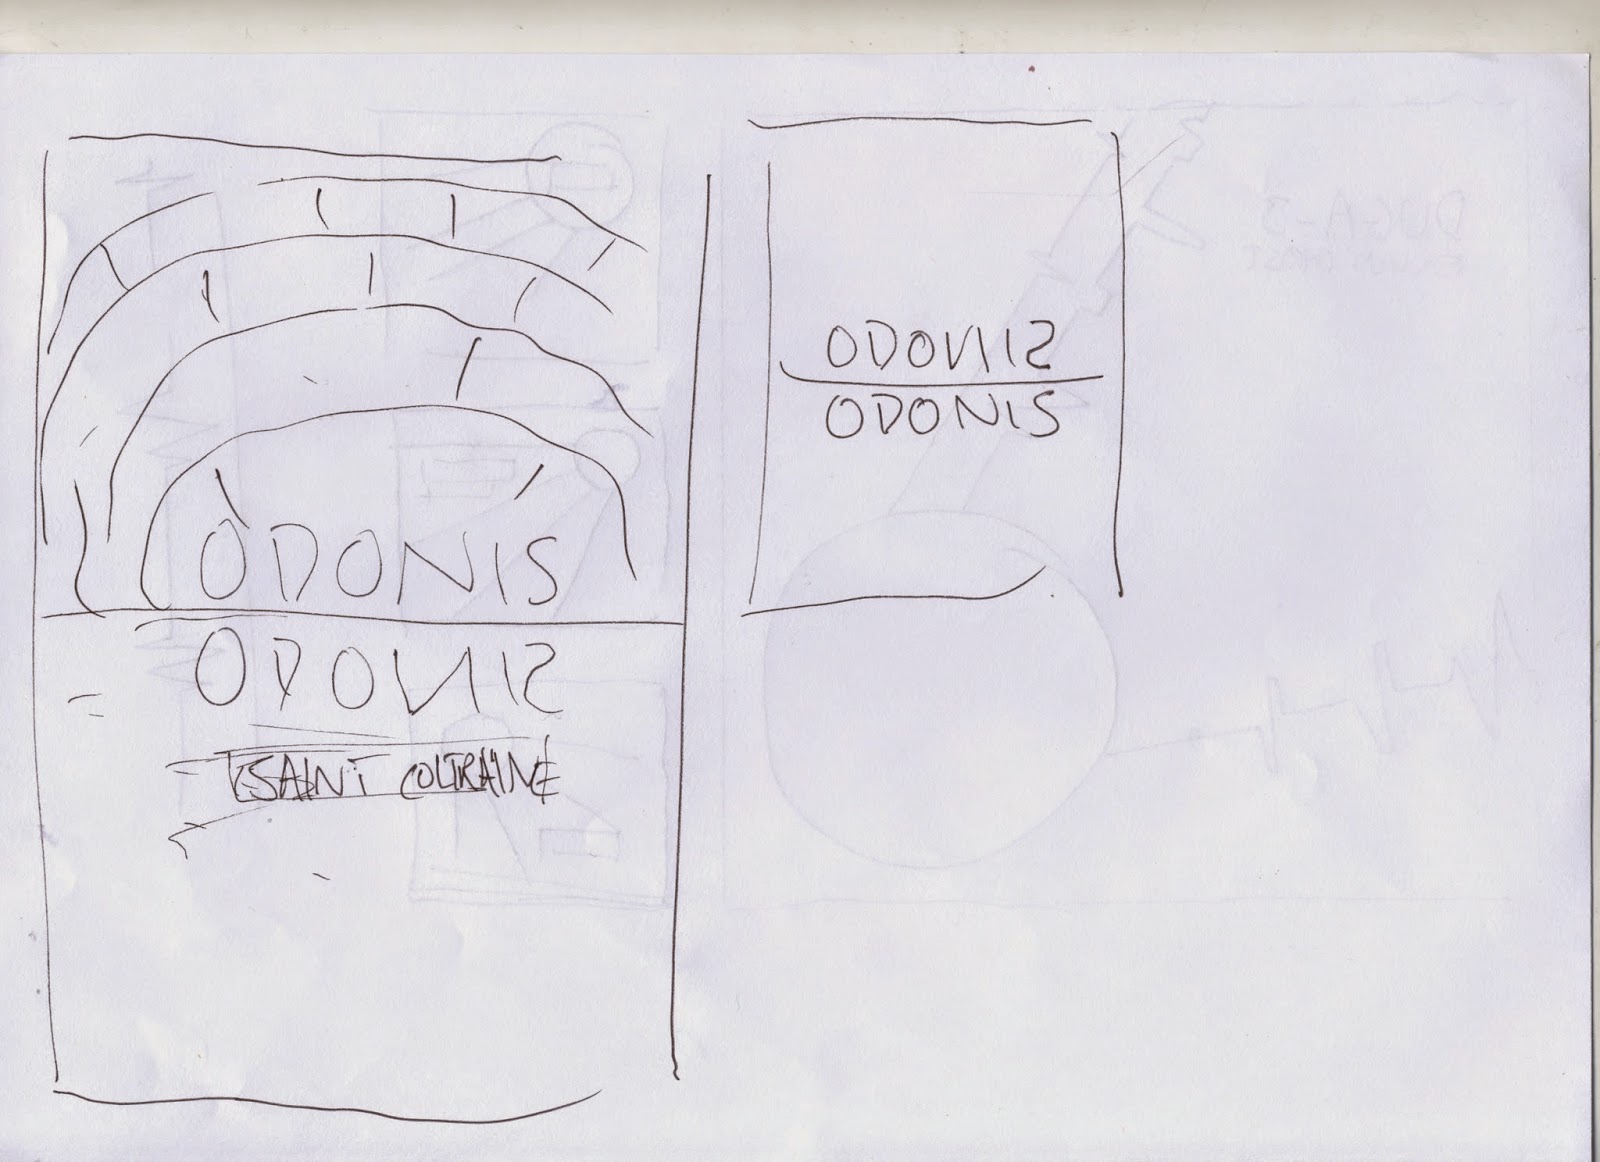 ODONIS
ODONIS
SAINT COLTRAINE
ODONIS
ODONIS
DUGA-3